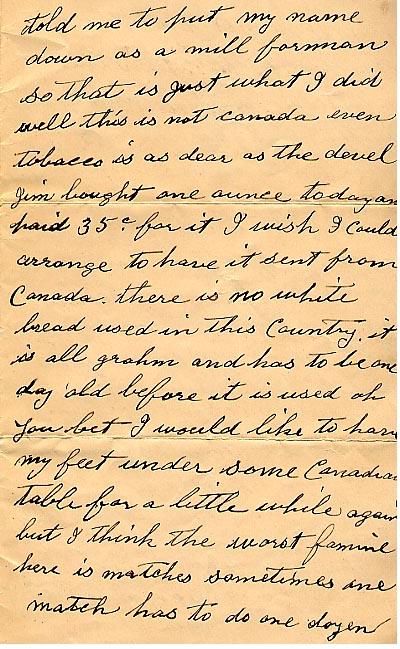 told me to put my name
down as a mill forman
so that is just what I did
well this is not canada even
tobacco is as dear as the devel
Jim bought one ounce today an
paid 35c for it I wish I could
arrange to have it sent from
Canada. there is no white
bread used in this Country. it
is all grahm and has to be one
day old before it is used oh
you bet I would like to have
my feet under some Canadian
table for a little while again
but I think the worst famine
here is matches sometimes one
match has to do one dozen